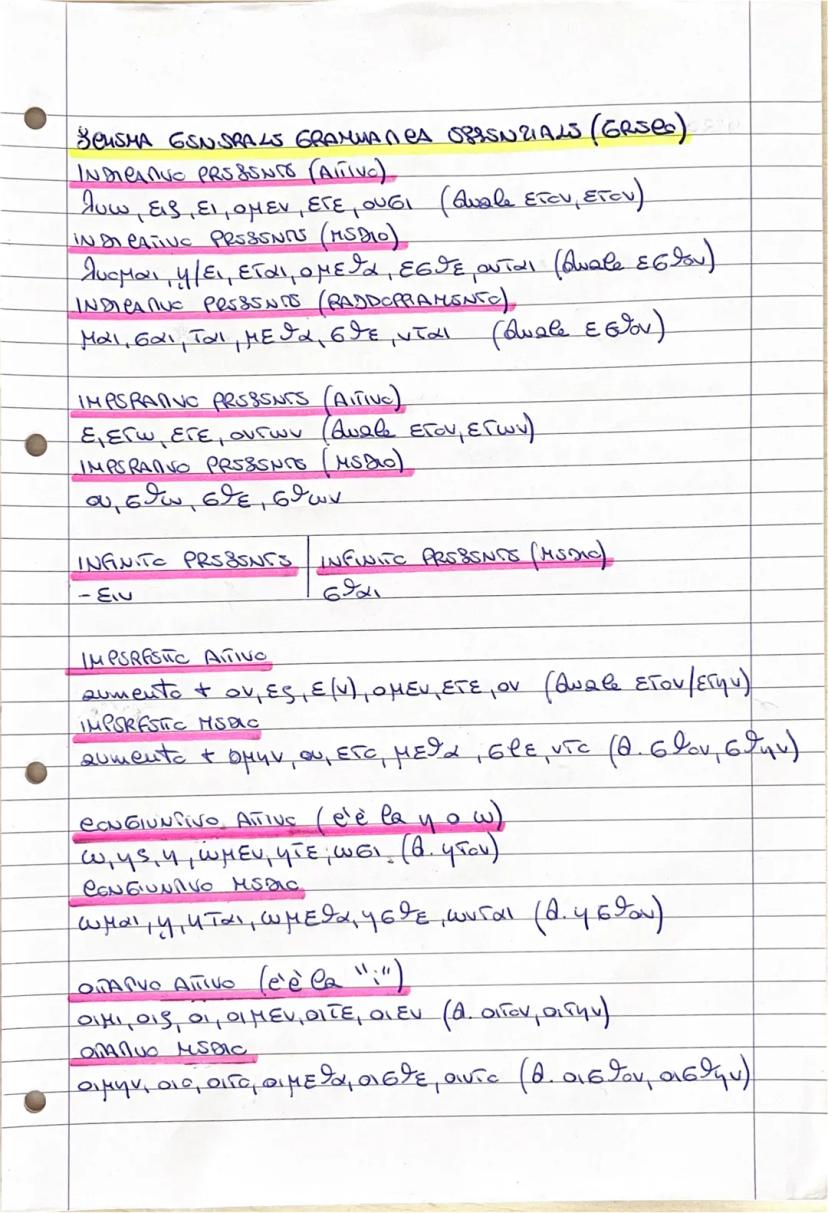 SCHEMA GENERALE GRAMMATICA ESSENZIALE (GRECO)
INDICATIVO PRESENTE (ATTIVO)
λυω, εις, ει, ομεν, ετε, ουσι (duale ετον, ετον)
INDICATIVO PRESENTE (MEDIO)
λυομαι, η/ει, εται, ομεθα, εσθε, ονται (duale εσθον)
INDICATIVO PRESENTE (RADDOPPIAMENTO)
μαι, σαι, ται, μεθα, σθε, νται (duale εσθον)
IMPERATIVO PRESENTE (ATTIVO)
ε, ετω, ετε, οντων (duale ετον, ετων)
IMPERATIVO PRESENTE (MEDIO)
ου, σθω, σθε, σθων
INFINITO PRESENTE | INFINITO PRESENTE (MEDIO)
- ειν | σθαι
IMPERFETTO ATTIVO
aumento + ον, ες, ε(ν), ομεν, ετε, ον (duale ετον/ετην)
IMPERFETTO MEDIO
aumento + ομην, ου, ετο, μεθα, σθε, ντο (d. σθον, σθην)
CONGIUNTIVO ATTIVO (c'è la η o ω)
ω, ης, η, ωμεν, ητε, ωσι (d. ητον)
CONGIUNTIVO MEDIO
ωμαι, η, ηται, ωμεθα, ησθε, ωνται (d. ησθον)
OTTATIVO ATTIVO (c'è la "i")
οιμι, οις, οι, οιμεν, οιτε, οιεν (d. οιτον, οιτην)
OTTATIVO MEDIO
οιμην, οιο, οιτο, οιμεθα, οισθε, οιντο (d. οισθον, οισθην)